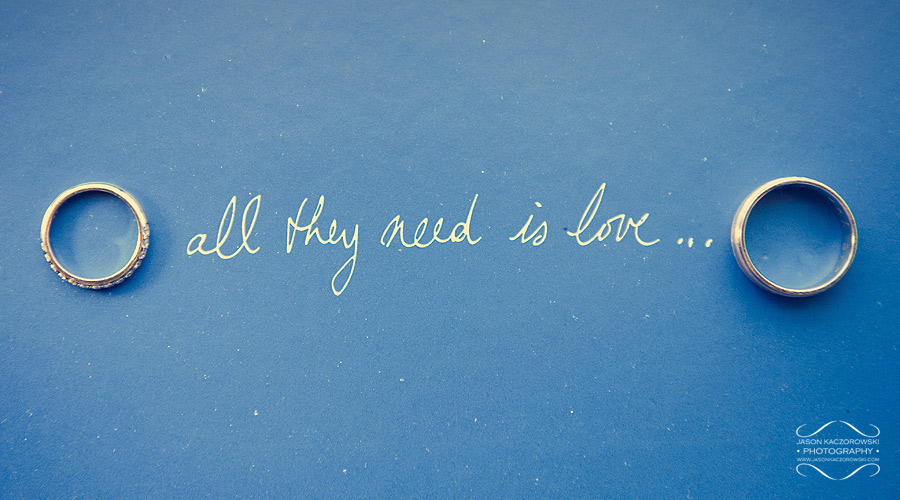 all they need is love...
JASON KACZOROWSKI
• PHOTOGRAPHY •
WWW.JASONKACZOROWSKI.COM